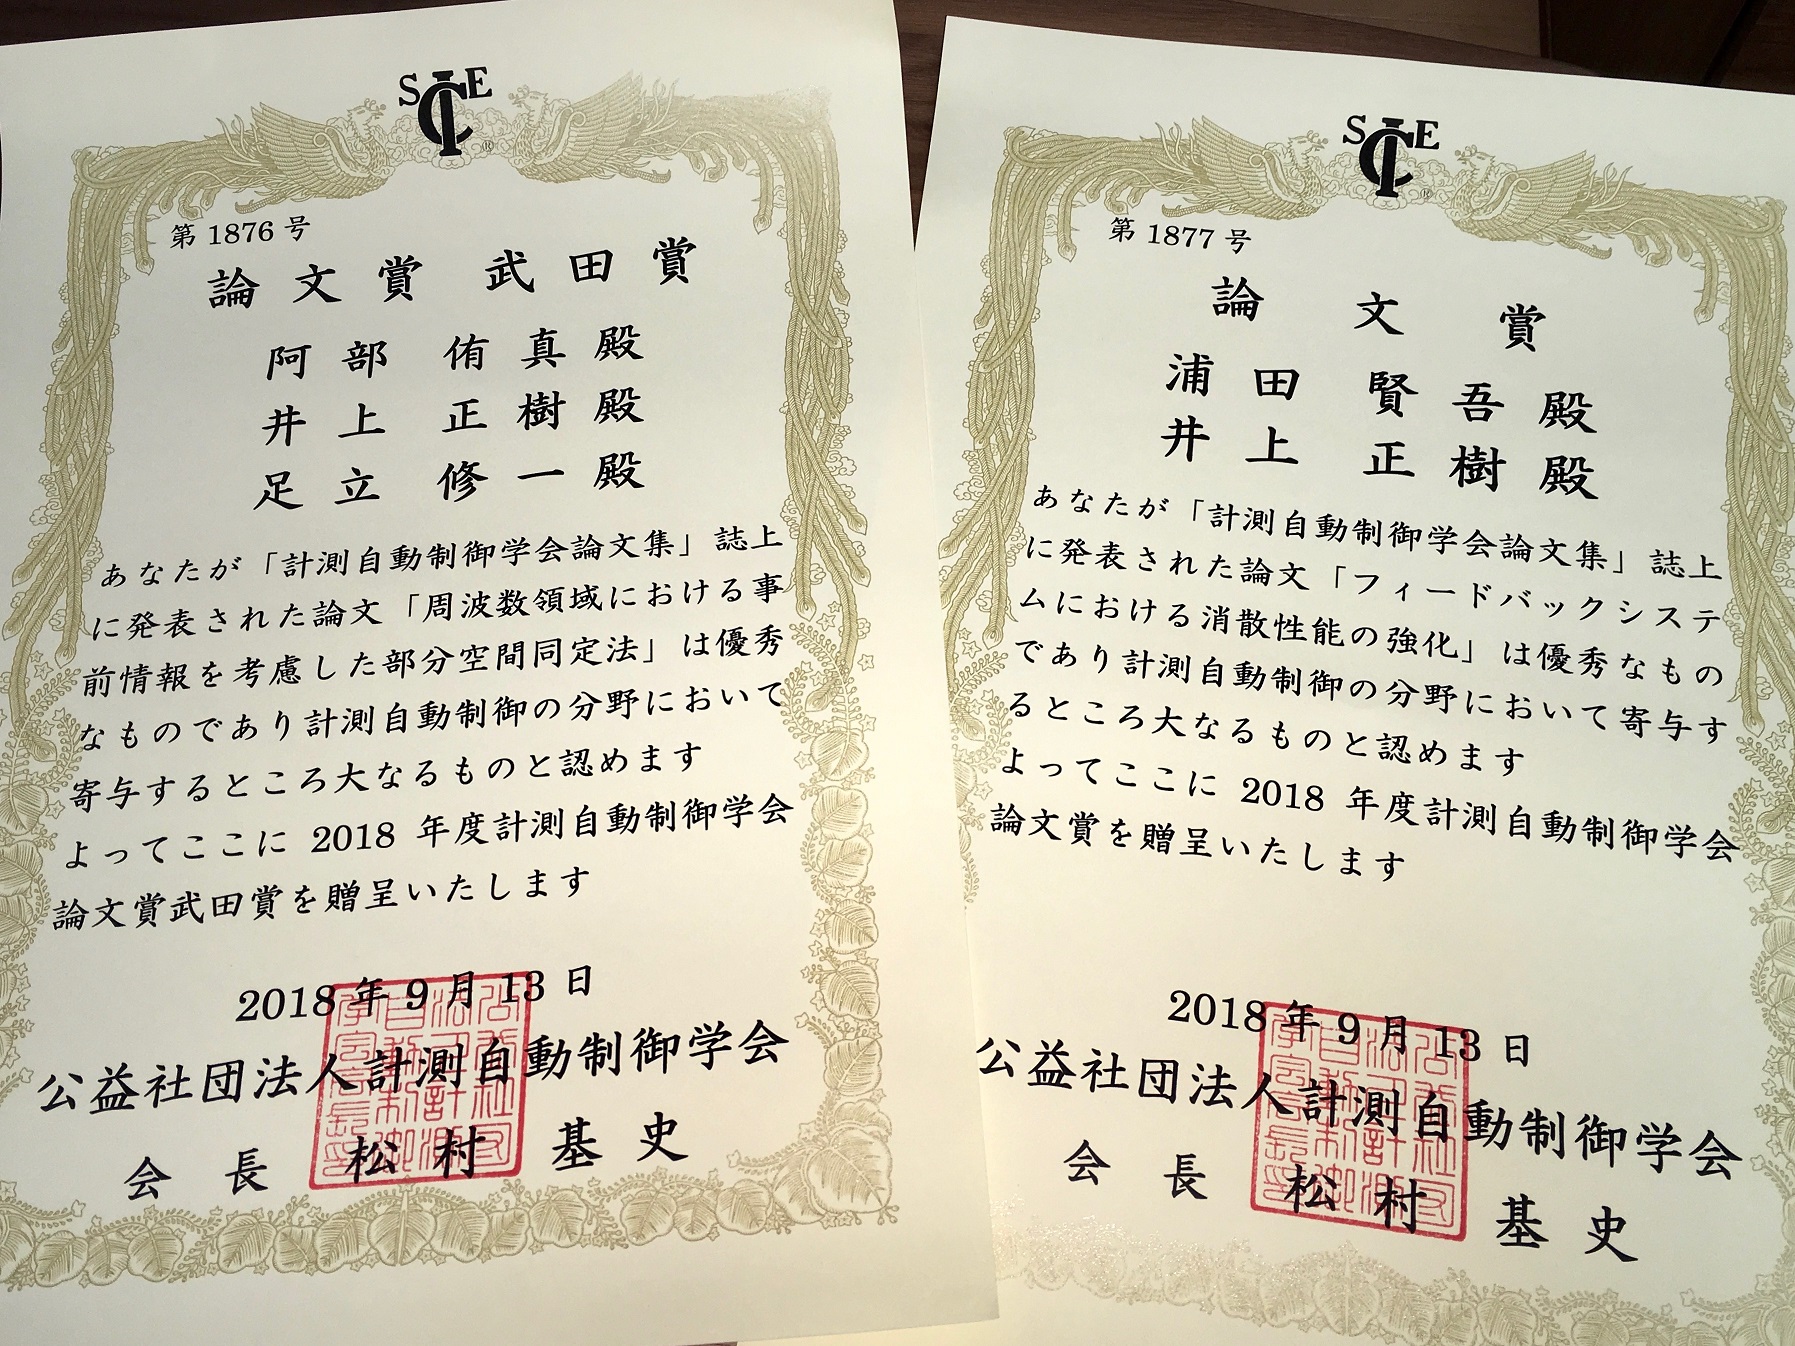 SICE
®
第 1876 号
論文賞 武田賞
阿部 侑真殿
井上 正樹殿
足立 修一殿
あなたが「計測自動制御学会論文集」誌上
に発表された論文「周波数領域における事
前情報を考慮した部分空間同定法」は優秀
なものであり計測自動制御の分野において
寄与するところ大なるものと認めます
よってここに 2018 年度計測自動制御学会
論文賞武田賞を贈呈いたします
2018 年 9 月 13 日
公益社団法人計測自動制御学会
会長 松村 基史
SICE
®
第 1877 号
論文賞
浦田 賢吾殿
井上 正樹殿
あなたが「計測自動制御学会論文集」誌上
に発表された論文「フィードバックシステ
ムにおける消散性能の強化」は優秀なもの
であり計測自動制御の分野において寄与す
るところ大なるものと認めます
よってここに 2018 年度計測自動制御学会
論文賞を贈呈いたします
2018 年 9 月 13 日
公益社団法人計測自動制御学会
会長 松村 基史